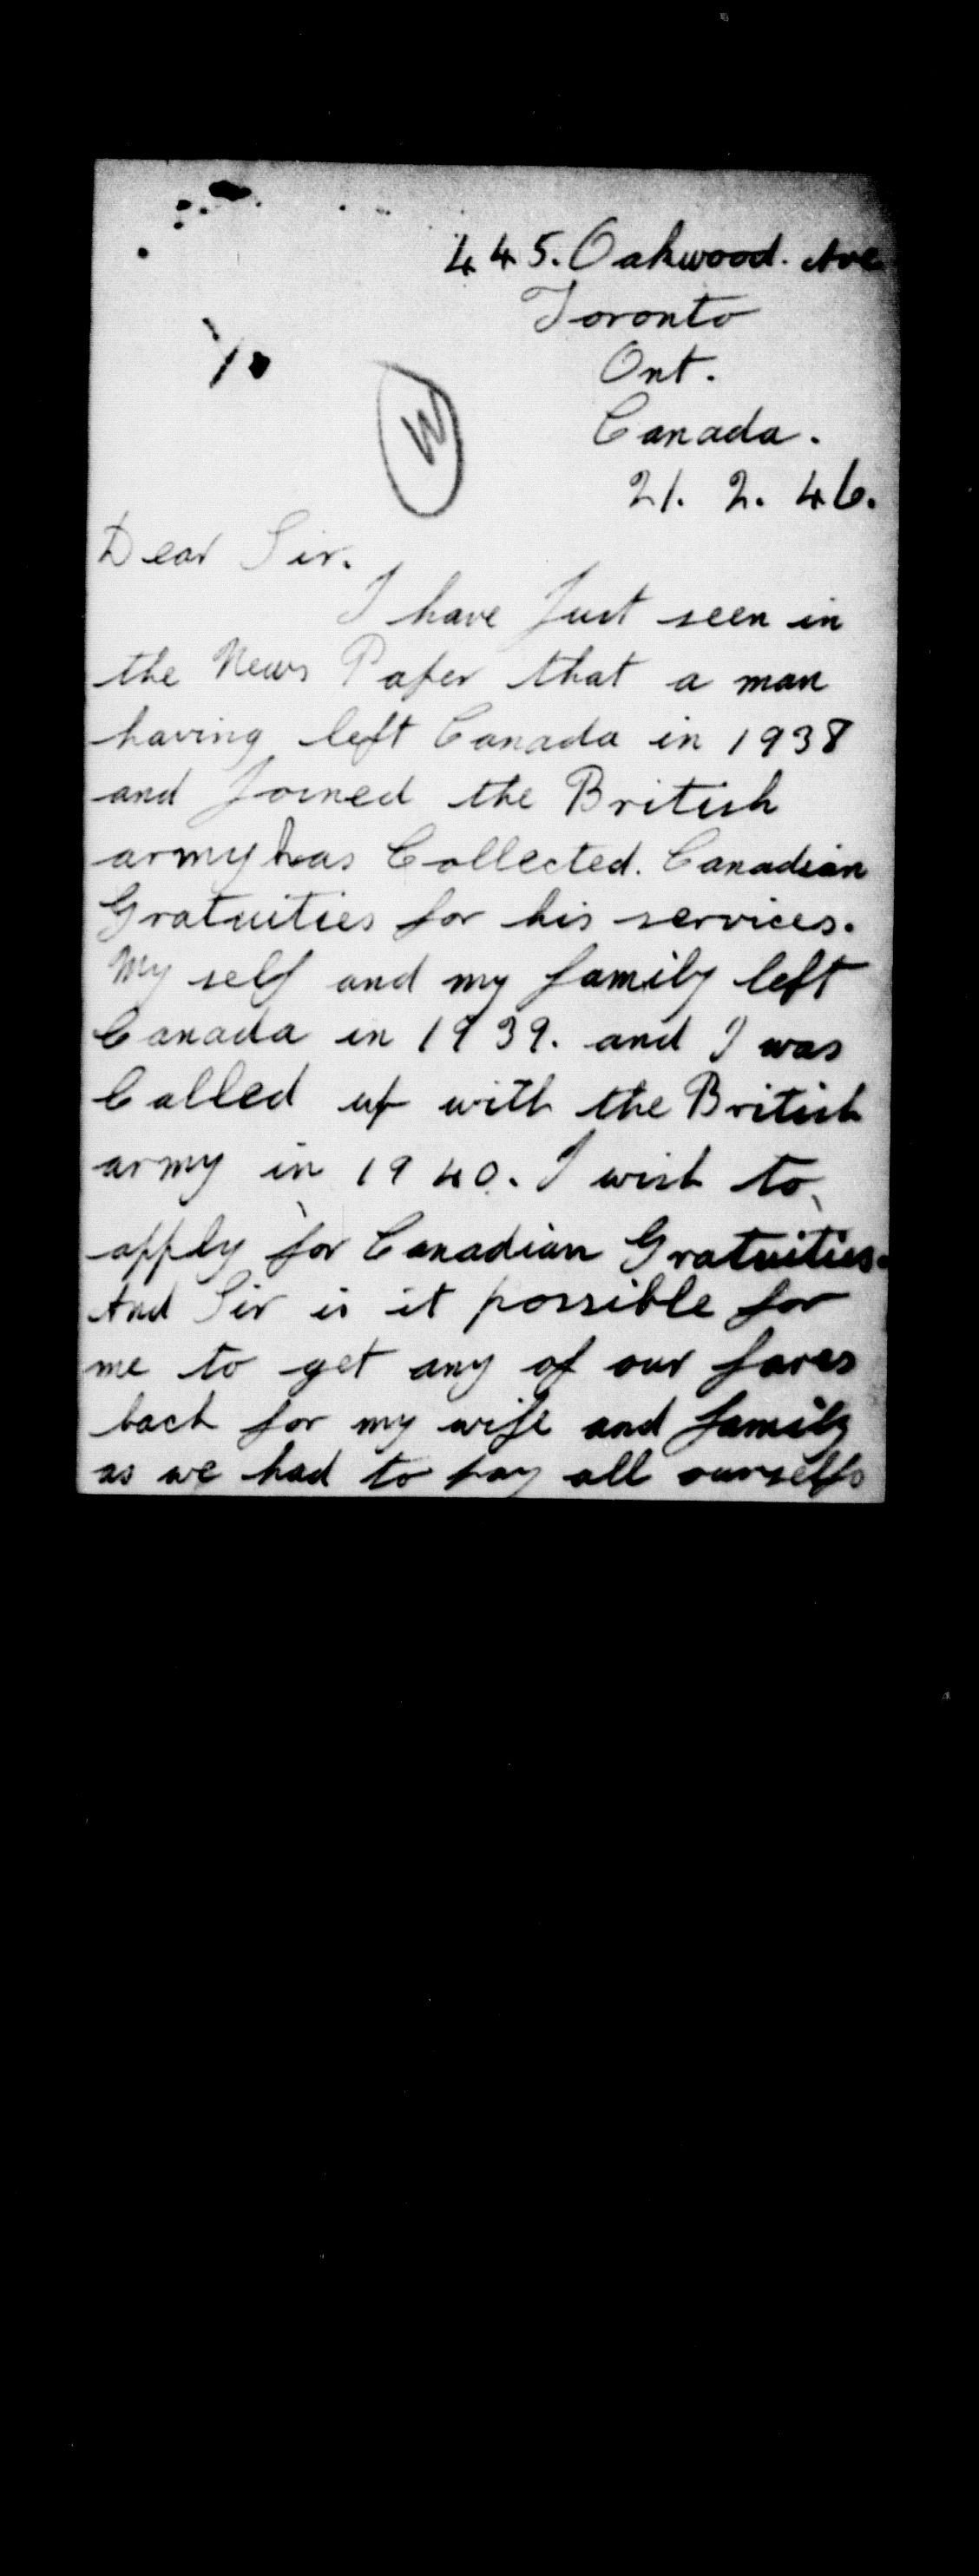 445. Oakwood. Ave
Toronto
Ont.
Canada.
W
21. 2. 46.
Dear Sir.
I have Just seen in
the News Paper that a man
having left Canada in 1938
and Joined the British
army has Collected. Canadian
Gratuities for his services.
My self and my family left
Canada in 1939. and I was
Called up with the British
army in 1940. I wish to
apply for Canadian Gratuities.
And Sir is it possible for
me to get any of our fares
back for my wife and family
as we had to pay all ourselfs